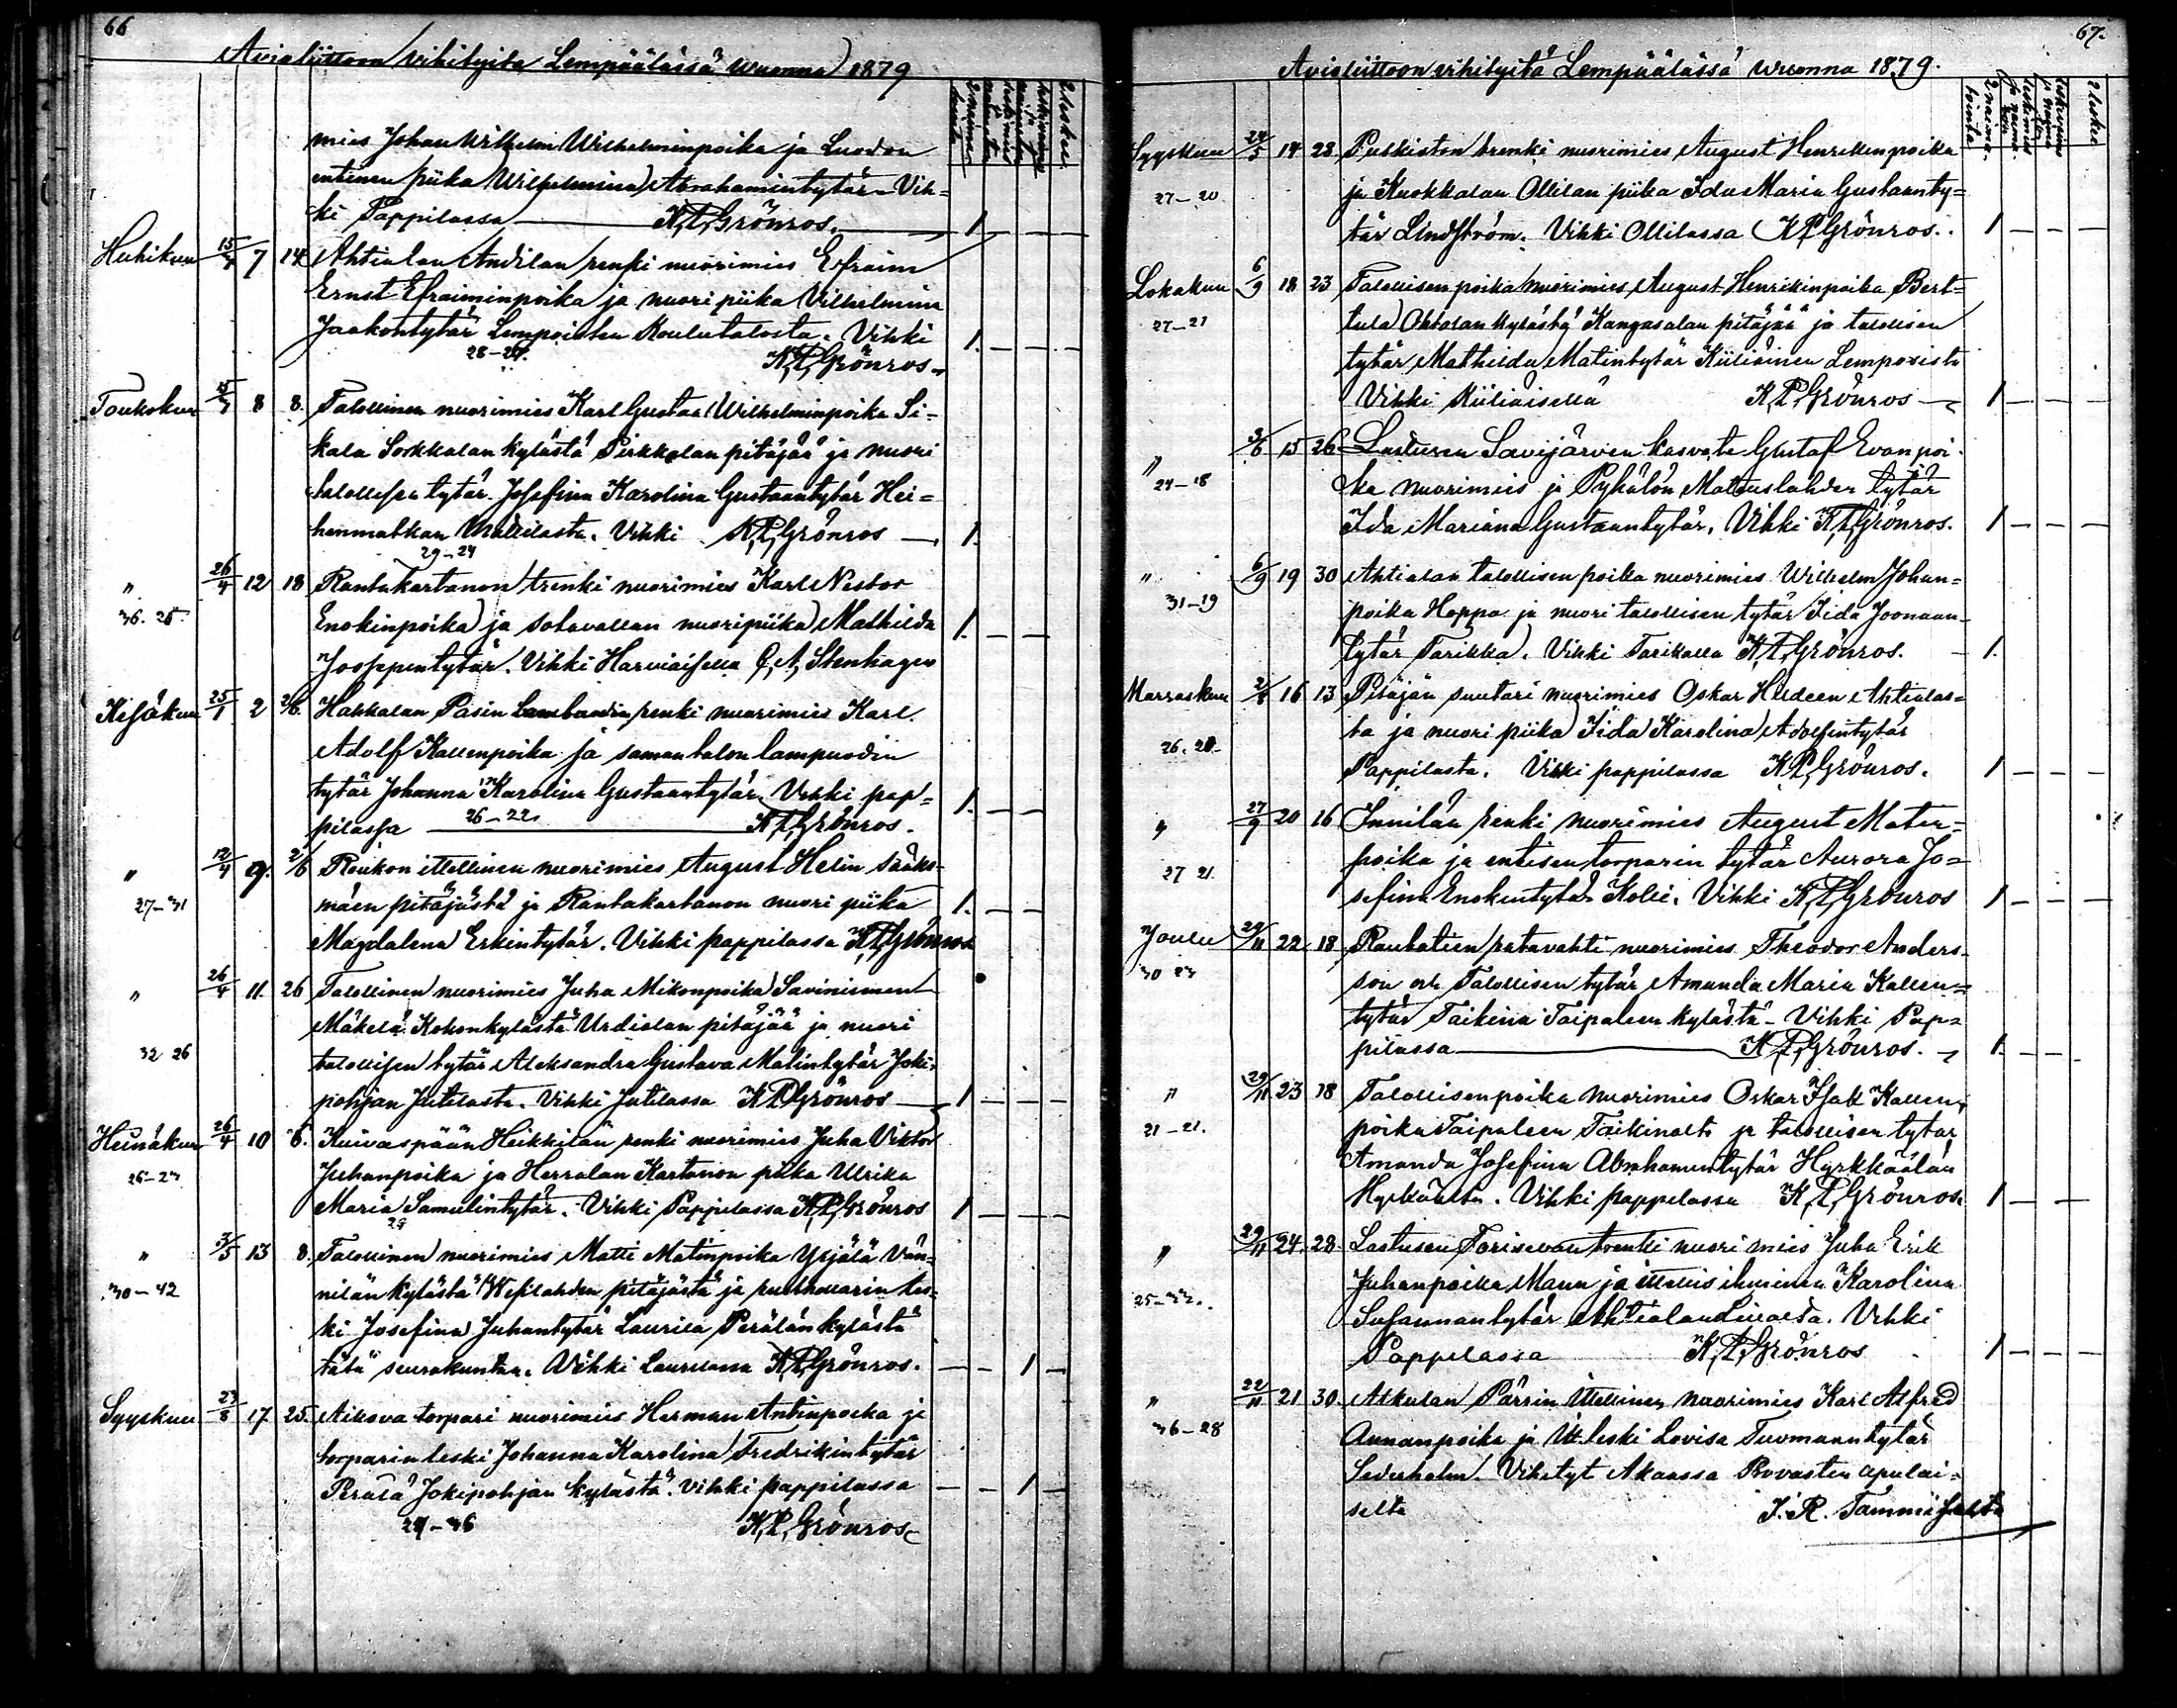 66
Avioliittoon vihityitä Lempäälässä wuonna 1879
mies Johan Wilhelm Wilhelminpoika ja Luodon
entinen piika Wilhelmina Abrahamintytär. Vih-
ki Pappilassa K,P,Grönros. 1
Huhtikuu 15/4 7 14 Ahtialan Andilan renki nuorimies Efraim
Ernst Efraiminpoika ja nuori piika Vilhelmina
Jaakontytär Lempoisten Koulutalosta. Vihki 1
28-27. K,P,Grönros
Toukokuu 8 8. Talollinen nuorimies Karl Gustaa Wilhelminpoika Si-
kala Sorkkalan kylästä Pirkkalan pitäjää ja nuori
talollisen tytär Josefina Karolina Gustaantytär Hei-
henmatkan Mattilasta. Vihki K,P,Grönros 1.
29-24
" 26/4 12 18 Rantakartanon trenki nuorimies Karl Nestor
36. 25. Enokinpoika ja Sotavallan nuoripiika Mathilda 1.
Jooseppintytär. Vihki Harviaisella C,A, Stenhagen
Kesäkuu 25/1 2 2/6. Hakkalan Pasin renki nuorimies Karl
Adolf Kallenpoika ja saman talon lampuodin
tytär Johanna Karolina Gustaantytär. Vihki pap- 1.
pilassa 26-22 K,P,Grönros.
" 12/4 9. 2/6 Roukon itellinen nuorimies August Helin Sääks-
27-31 mäen pitäjästä ja Rantakartanon nuori piika 1.
Magdalena Erkintytär. Vihki pappilassa K,P,Grönros
" 26/4 11. 26 Talollinen nuorimies Juha Mikonpoika Saviniemen
Mäkelä Kohonkylästä Urdialan pitäjää ja nuori
32 26 talollisen tytär Aleksandra Gustava Matintytär Joki-
pohjan Jutilasta. Vihki Jutilassa K,P,Grönros 1
Heinäkuu 26/4 10 6. Kuivaspään Heikkilän renki nuorimies Juha Viktor
26-23 Juhanpoika ja Herralan Kartanon piika Ulrika
Maria Samulintytär. Vihki Pappilassa K,P,Grönros 1
29
" 3/5 13 8. Talollinen nuorimies Matti Matinpoika Yrjälä Vän-
30-42 nilän kylästä Wesilahden pitäjästä ja rusthollarin les-
ki Josefina Juhantytär Laurila Perälänkylästä
tätä seurakuntaa. Vihki Laurilassa K,P,Grönros. 1
Syyskuu 23/8 17 25. Aikova torpari nuorimies Herman Antinpoika ja
torparin leski Johanna Karolina Fredrikintytär
Perälä Jokipohjan kylästä. Vihki pappilassa 1
29-36 K,P,Grönros
67.
Avioliittoon vihityitä Lempäälässä wuonna 1879.
Syyskuu 24/5 14 28 Pulkiston trenki nuorimies August Henrikinpoika
27-20 ja Kuokkalan Ollilan piika Ida Maria Gustaanty-
tär Lindström. Vihki Ollilassa K,P,Grönros. 1
Lokakuu 6/9 18 23 Talollisen poika nuorimies August Henrikinpoika Bert-
27-21 tula Ohtolan kylästä Kangasalan pitäjää ja talollisen
tytär Mathilda Matintytär Kiiliäinen Lempoista
Vihki Kiiliäisellä K,P,Grönros 1
" 3/6 15 26 Lastusen Savijärven kasvate Gustaf Evanpoi-
24-18 ka nuorimies ja Pyhälön Mattuslahden tytär
Ida Mariana Gustaantytär. Vihki K,P,Grönros. 1
" 6/9 19 30 Ahtialan talollisen poika nuorimies Wilhelm Johan-
31-19 poika Hoppa ja nuori talollisen tytär Iida Joonaan-
tytär Tarikka. Vihki Tarikalla K,P,Grönros. 1.
Marraskuu 2/8 16 13 Pitäjän suutari nuorimies Oskar Hildeen Ahtialas-
26.20. ta ja nuori piika Iida Karolina Adolfintytär
Pappilasta. Vihki pappilassa K,P,Grönros. 1
" 27/9 20 16 Innilän renki nuorimies August Matin-
27 21. poika ja entisen torparin tytär Aurora Jo-
sefina Enokintytär Kolli. Vihki K,P,Grönros 1
Joulu 29/11 22 18 Rautatien ratavahti nuorimies Theodor Anders-
30 23 son och Talollisen tytär Amanda Maria Kallen-
tytär Taikina Taipaleen kylästä. Vihki Pap-
pilassa K,P,Grönros. 1.
" 29/11 23 18 Talollisen poika nuorimies Oskar Isak Kallen-
21-21. poika Taipaleen Taikinalta ja talollisen tytär
Amanda Josefina Abrahamintytär Hyrkkäälän
Hyrkäältä. Vihki pappilassa K,P,Grönros 1
" 29/11 24. 28. Lastusen Torisevan trenki nuori mies Juha Erik
25-33. Juhanpoika Mann ja itellis ihminen Karolina
Susannantytär Ahtialan. Vihki
Pappilassa K,P,Grönros 1
" 22/11 21 30. Alkulan Pärrin Itellinen nuorimies Karl Alfred
36-28 Annanpoika ja Itt. leski Lovisa Tuomaantytär
Sederholm. Vihityt Akaassa Rovastin apulai-
selta J. R. Tammisalta